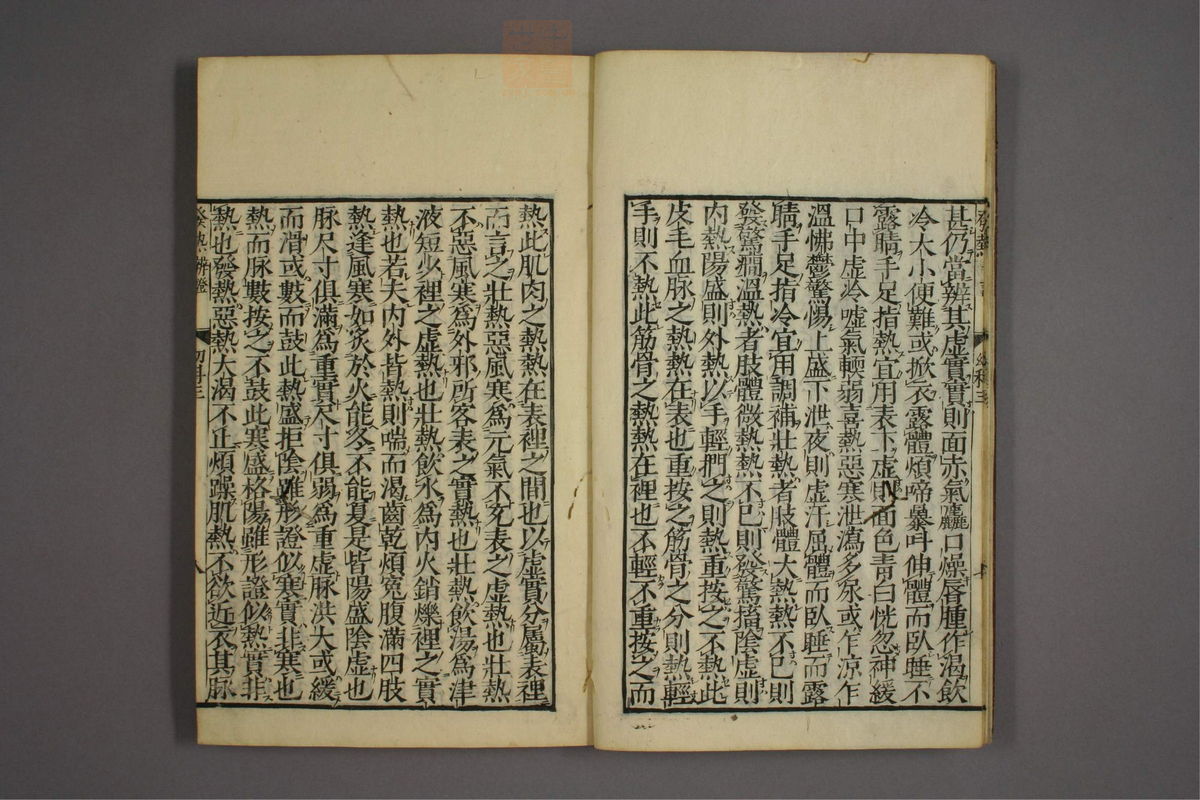 甚仍當辨其虛實實則面赤氣麤口燥唇腫作渴飲
冷大小便難或掀衣露體煩啼暴呌伸體而臥睡不
露睛手足指熱宜用表下虛則面色青白恍忽神緩
口中虛冷噓氣軟弱喜熱惡寒泄瀉多尿或乍涼乍
溫怫鬱驚惕上盛下泄夜則虛汗屈體而臥睡而露
睛手足指冷宜用調補壯熱者肢體大熱熱不已則
發驚癇溫熱者肢體微熱熱不已則發驚搐陰虛則
内熱陽盛則外熱以手輕捫之則熱重按之不熱此
皮毛血脉之熱熱在表也重按之筋骨之分則熱輕
手則不熱此筋骨之熱熱在裡也不輕不重按之而
熱此肌肉之熱熱在表裡之間也以虛實分屬表裡
而言之壯熱惡風寒爲元氣不充表之虛熱也壯熱
不惡風寒爲外邪所客表之實熱也壯熱飲湯爲津
液短少裡之虛熱也壯熱飲水爲内火銷爍裡之實
熱也若夫内外皆熱則喘而渴齒乾煩寃腹滿四肢
熱逢風寒如炙於火能冬不能夏是皆陽盛陰虛也
脉尺寸俱滿爲重實尺寸俱弱爲重虛脉洪大或緩
而滑或數而鼓此熱盛拒陰雖形證似寒實非寒也
熱而脉數按之不鼓此寒盛格陽雖形證似熱實非
熱也發熱惡熱大渴不止煩躁肌熱不欲近衣其脉
發熱辨證
八